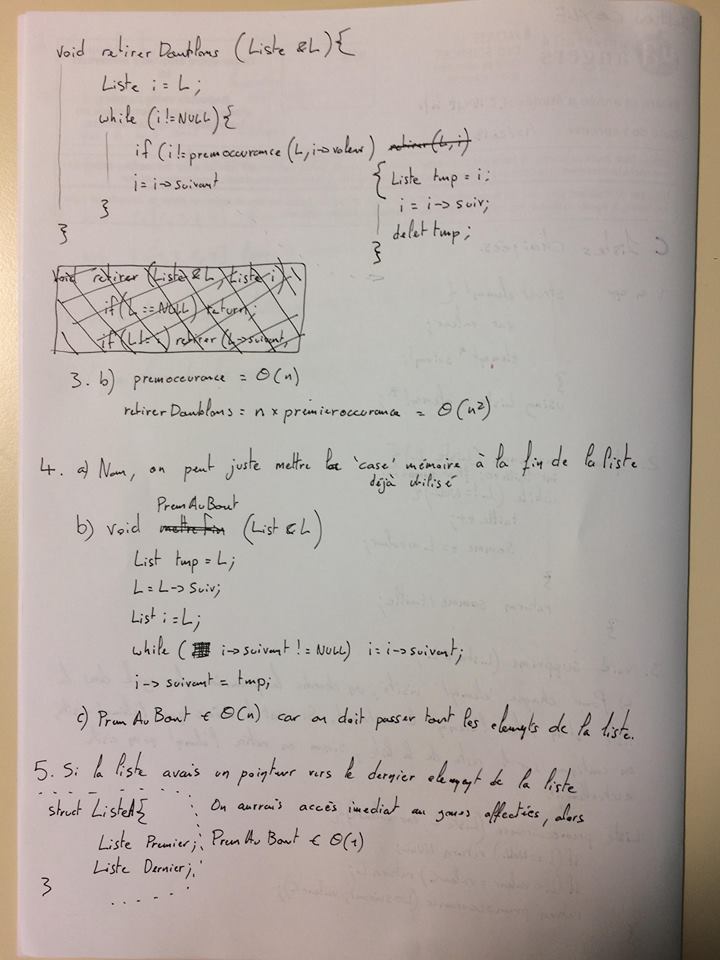 void retirerDoublons (Liste &L){
Liste i = L;
while (i != NULL){
if (i != premoccurance (L, i->valeur) retirer(L,i)
{ Liste tmp = i;
i = i->suivant
i = i->suiv;
}
delet tmp;
}
}
void retirer (Liste &L, Liste i)
if (L == NULL) return;
if (L != i) retirer (L->suivant,
3. b) premoccurance = Θ(n)
retirerDoublons = n x premieroccurance = Θ(n²)
4. a) Non, on peut juste mettre la 'case' mémoire à la fin de la liste
déjà utilisé
PremAuBout
b) void mettre fin (List &L)
List tmp = L;
L = L->suiv;
List i = L;
while ( i->suivant != NULL) i = i->suivant;
i->suivant = tmp;
c) PremAuBout € Θ(n) car on doit passer tout les elemnts de la liste.
5. Si la liste avais un pointeur vers le dernier element de la liste
struct ListeA{ On aurrais accès imediat au affectées, alors
Liste Premier; PremAuBout € Θ(1)
Liste Dernier;
}